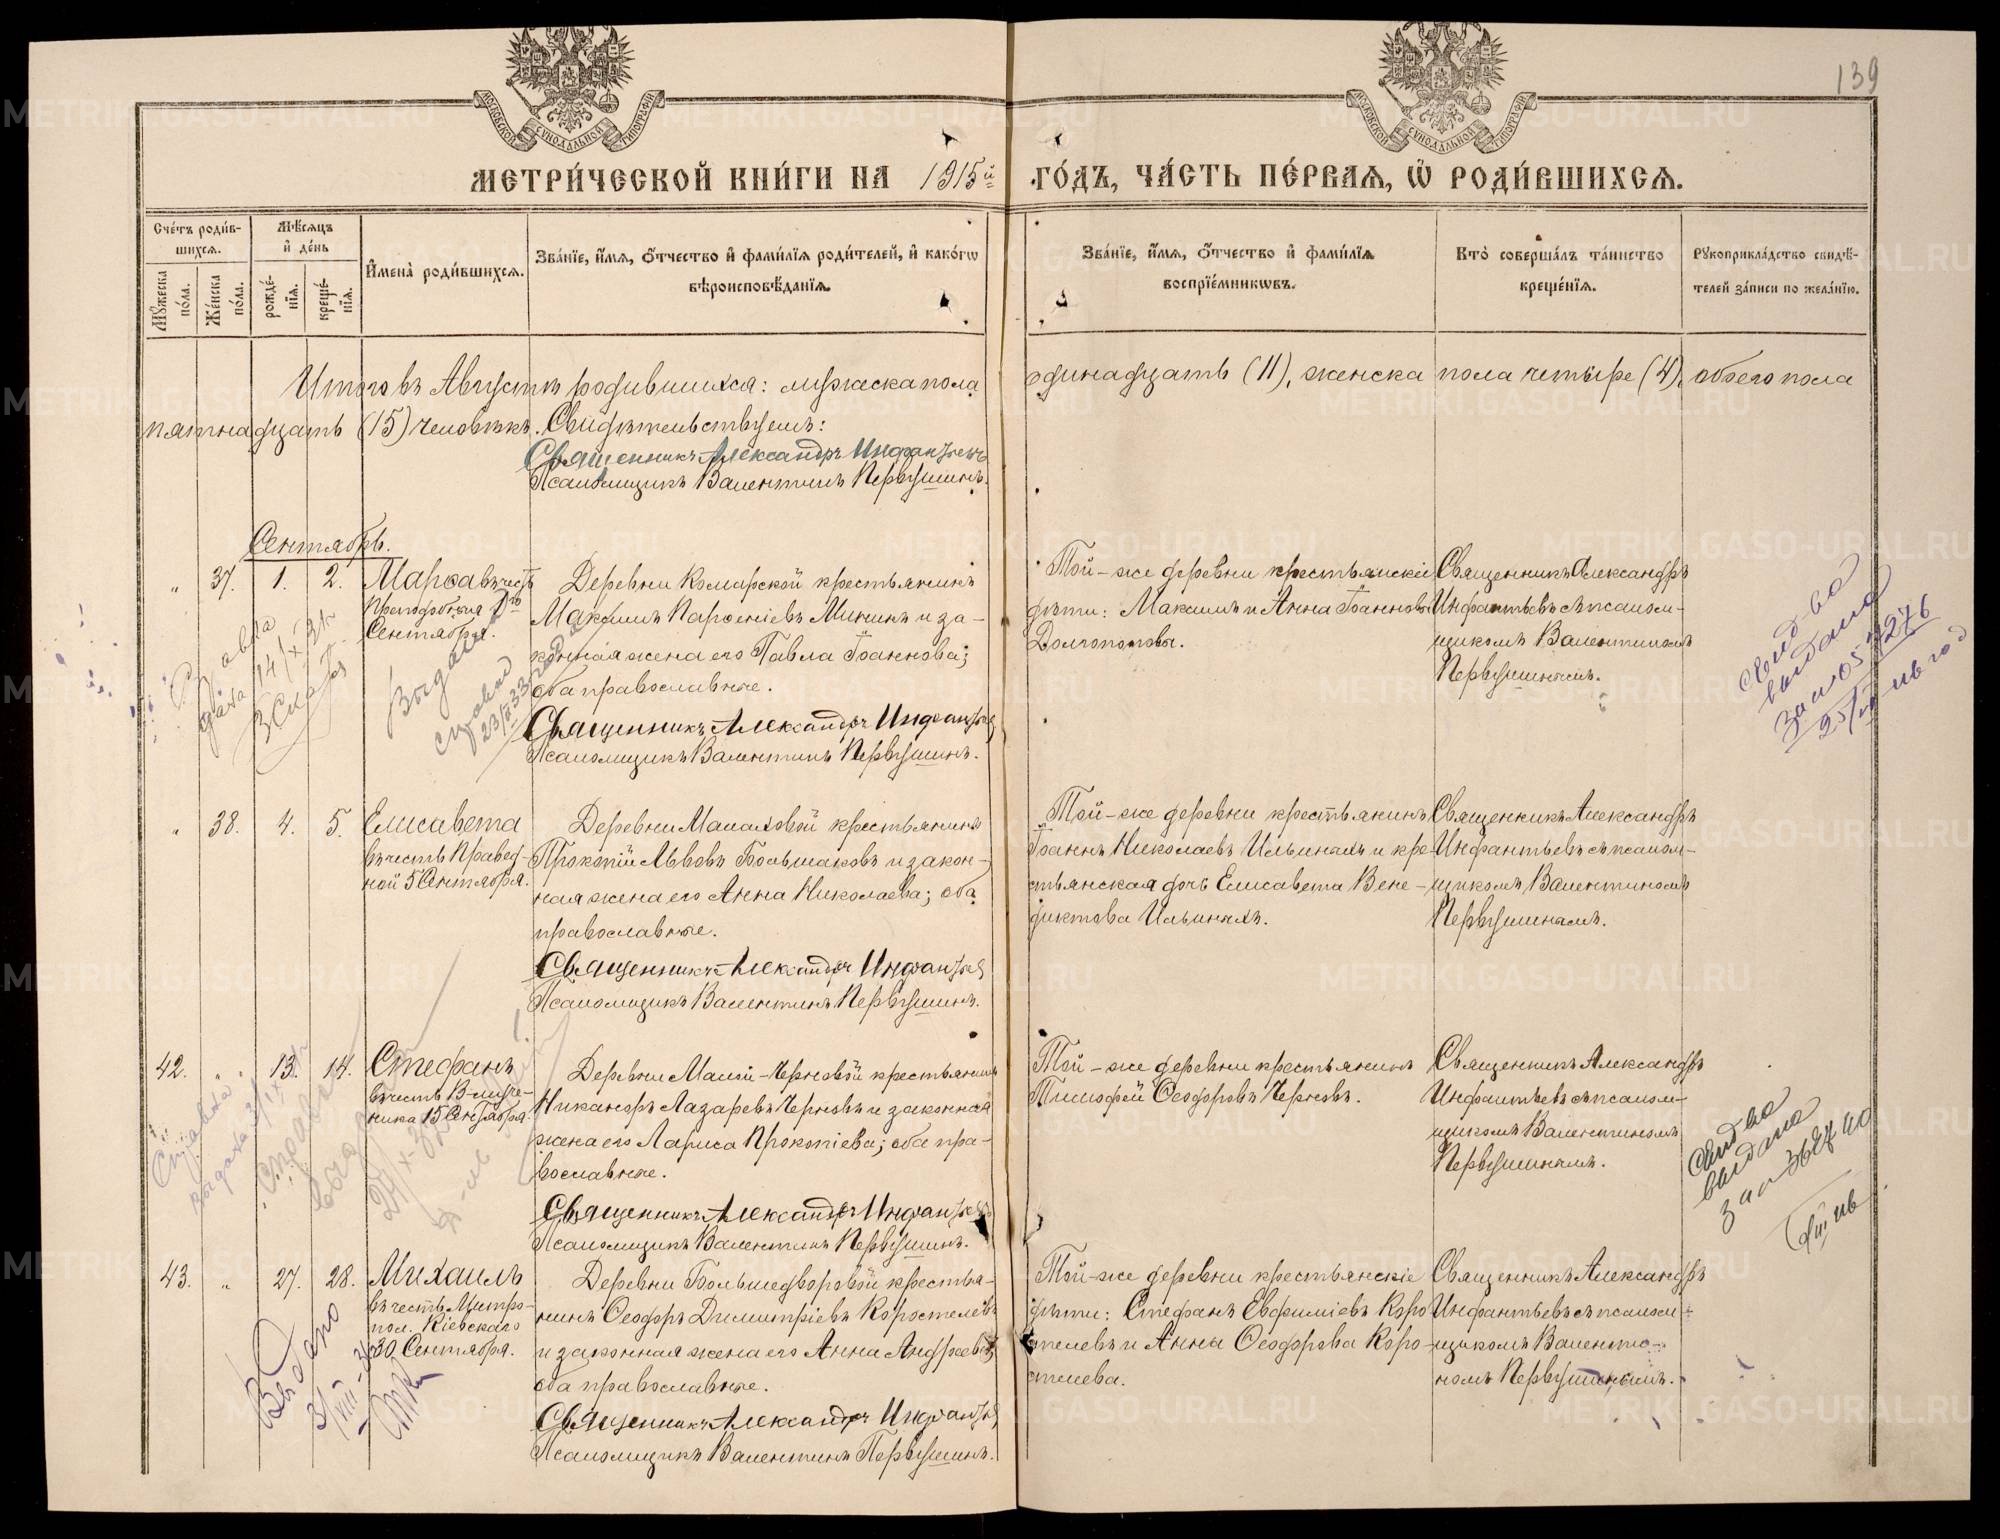 139
МОСКОВСКОЙ СѴНОДАЛЬНОЙ ТИПОГРАФІИ
МОСКОВСКОЙ СѴНОДАЛЬНОЙ ТИПОГРАФІИ
МЕТРИ́ЧЕСКОЙ КНИ́ГИ НА 1915й ГО́ДЪ, ЧА́СТЬ ПЕ́РВАЯ, Ѡ҆ РОДИ́ВШИХСЯ.
Сче́тъ роди́в-
шихся.
Мѣ́сяцъ
и҆ де́нь
Мꙋ́жеска
по́ла.
Же́нска
по́ла.
рожде́-
нїя.
креще́-
нїя.
И҆мена̀ роди́вшихся.
Зва́нїе, и҆́мя, ѻ҆́тчество и҆ фами́лїя роди́телей, и҆ како́гѡ
вѣроисповѣ́данїя.
Зва́нїе, и҆́мя, ѻ҆́тчество и҆ фами́лїя
воспрїе́мникѡвъ.
Кто̀ соверша́лъ та́инство
креще́нїя.
Рꙋкоприкла́дство свидѣ́-
телей за́писи по жела́нїю.
Итого въ Августѣ родившихся: мужеска пола одинадцать (11), женска пола четыре (4), обего пола
пятнадцать (15) человѣкъ. Свидѣтельствуемъ:
Священникъ Александръ Инфантьевъ
Псаломщикъ Валентинъ Первушинъ.
Сентябрь.
" 37. 1. 2. Марѳа въ честь
Преподобныя 1го
Сентября.
Деревни Комарской крестьянинъ
Максимъ Парѳеніевъ Мининъ и за-
конная жена его Павла Іоаннова;
оба православные.
Священникъ Александръ Инфантьев
Псаломщикъ Валентинъ Первушинъ.
Той-же деревни крестьянскіе
дѣти: Максимъ и Анна Іоанновы
Долгополовы.
Священникъ Александръ
Инфантьевъ съ псалом-
щикомъ Валентиномъ
Первушинымъ.
Выдана
23/II 33
свид-во
выдано
за № 057276
" 38. 4. 5. Елисавета
въ честь Правед-
ной 5 Сентября.
Деревни Малаховой крестьянинъ
Прокопій Львовъ Большаковъ и закон-
ная жена его Анна Николаева; оба
православные.
Священникъ Александръ Инфантьев
Псаломщикъ Валентинъ Первушинъ.
Той-же деревни крестьянинъ
Іоаннъ Николаевъ Ильиныхъ и кре-
стьянская дочь Елисавета Вене-
диктова Ильиныхъ.
Священникъ Александръ
Инфантьевъ съ псалом-
щикомъ Валентиномъ
Первушинымъ.
42. " 13. 14. Стефанъ
въ честь В-муче-
ника 15 Сентября.
Деревни Малой-Черновой крестьянинъ
Никаноръ Лазаревъ Черновъ и законная
жена его Лариса Прокопіева; оба пра-
вославные.
Священникъ Александръ Инфантьев
Псаломщикъ Валентинъ Первушинъ.
Той-же деревни крестьянинъ
Тимофей Ѳеодоровъ Черновъ.
Священникъ Александръ
Инфантьевъ съ псалом-
щикомъ Валентиномъ
Первушинымъ.
Справка
выдана
справка
свид-во
выдано
за №
43. " 27. 28. Михаилъ
въ честь Митро-
пол. Кіевскаго
30 Сентября.
Деревни Большедворовой крестья-
нинъ Ѳеодоръ Димитріевъ Коростелевъ
и законная жена его Анна Андреева;
оба православные.
Священникъ Александръ Инфантьев
Псаломщикъ Валентинъ Первушинъ.
Той-же деревни крестьянскіе
дѣти: Стефанъ Евфиміевъ Коро-
стелевъ и Анна Ѳеодорова Коро-
стелева.
Священникъ Александръ
Инфантьевъ съ псалом-
щикомъ Валенти-
номъ Первушинымъ.
Выдано
METRIKI.GASO-URAL.RU